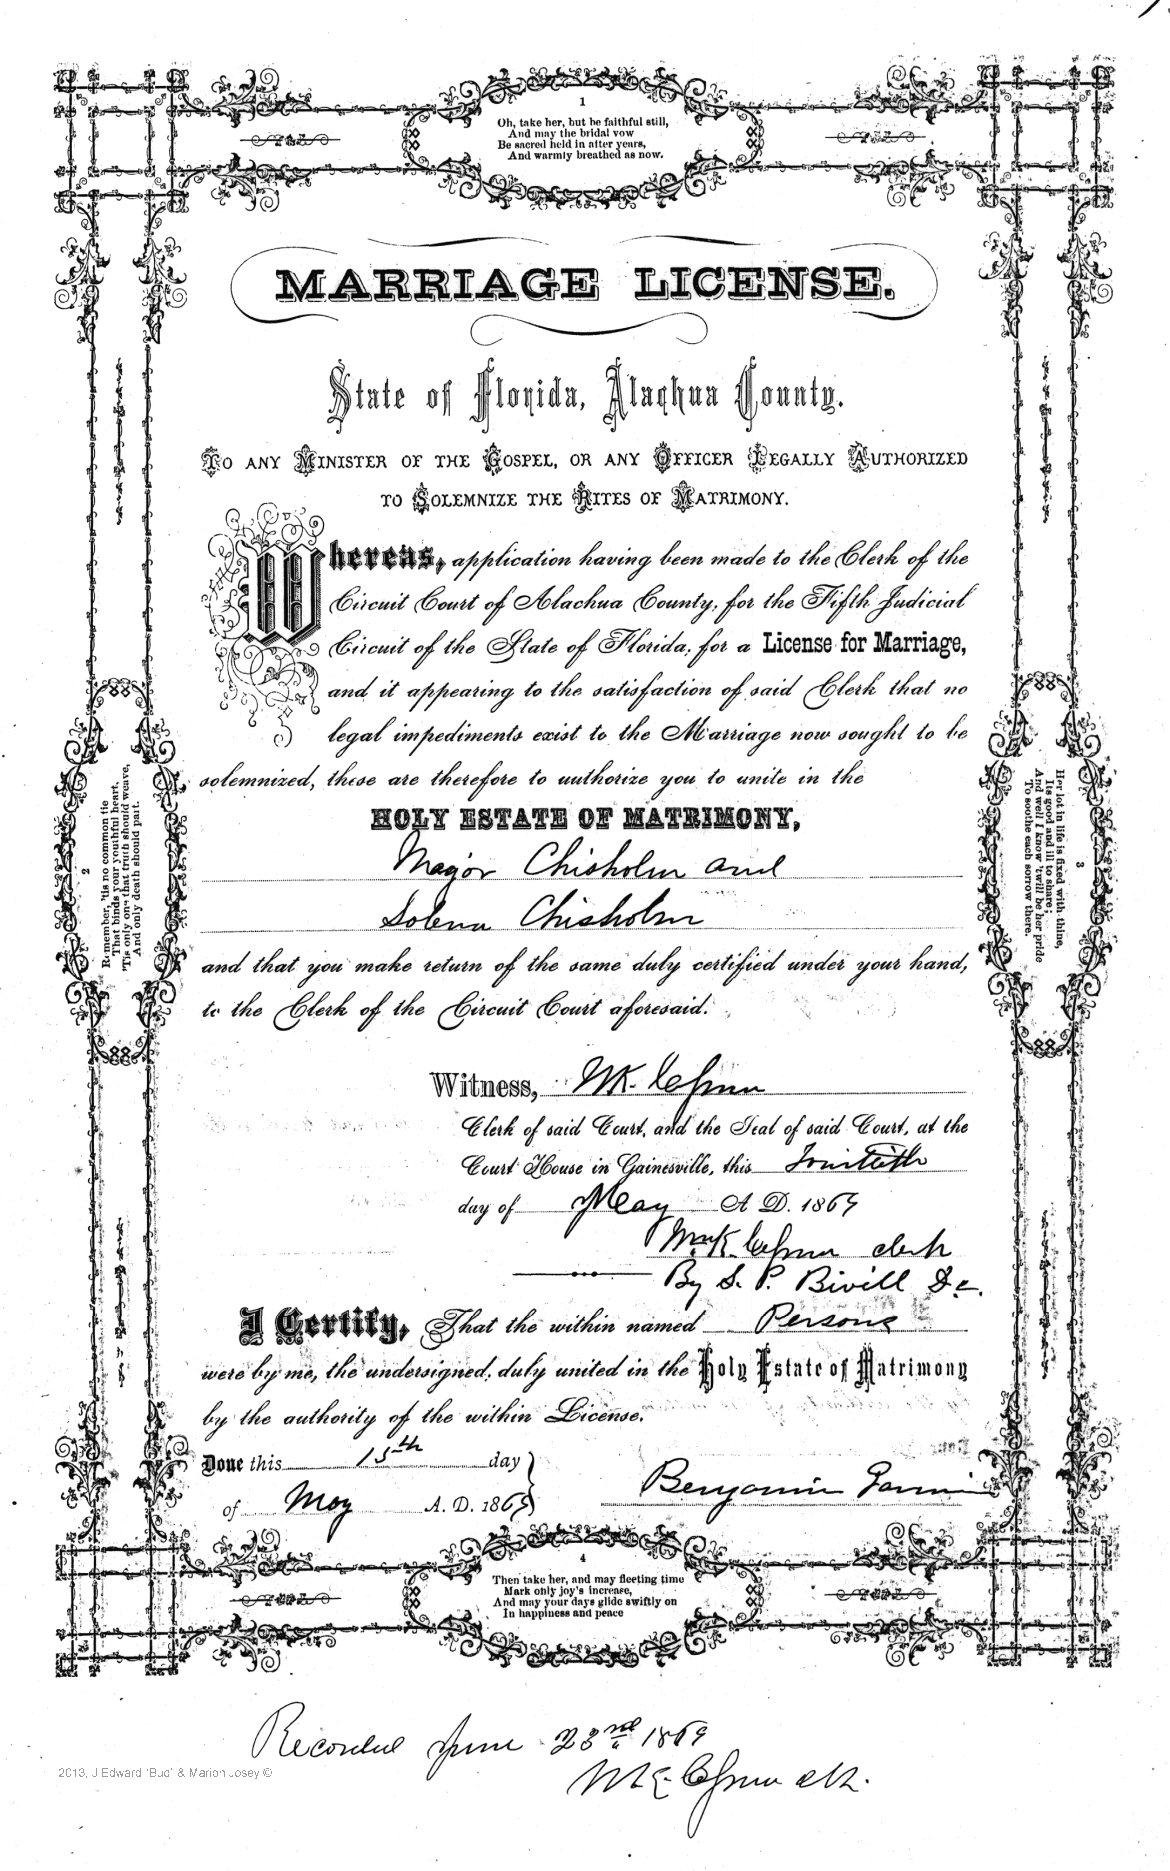 1
Oh, take her, but be faithful still,
And may the bridal vow
Be sacred held in after years,
And warmly breathed as now.
MARRIAGE LICENSE.
State of Florida, Alachua County.
TO ANY MINISTER OF THE GOSPEL, OR ANY OFFICER LEGALLY AUTHORIZED
TO SOLEMNIZE THE RITES OF MATRIMONY.
Whereas, application having been made to the Clerk of the
Circuit Court of Alachua County, for the Fifth Judicial
Circuit of the State of Florida, for a License for Marriage,
and it appearing to the satisfaction of said Clerk that no
legal impediments exist to the Marriage now sought to be
solemnized, these are therefore to authorize you to unite in the
HOLY ESTATE OF MATRIMONY,
Major Chisholm and
Solena Chisholm
and that you make return of the same duly certified under your hand,
to the Clerk of the Circuit Court aforesaid.
2
Remember, 'tis no common tie
That binds your youthful heart,
'Tis only one that truth should weave,
And only death should part.
3
Her lot in life is fixed with thine,
Its good and ill to share;
And well I know 'twill be her pride
To soothe each sorrow there.
Witness,
Clerk of said Court, and the Seal of said Court, at the
Court House in Gainesville, this
day of May A. D. 1869
clerk
By S. P. D.C.
I Certify, That the within named Persons
were by me, the undersigned, duly united in the Holy Estate of Matrimony
by the authority of the within License.
Done this 15th day
of May A. D. 1869
Benjamin
4
Then take her, and may fleeting time
Mark only joy's increase,
And may your days glide swiftly on
In happiness and peace
Recorded June 23rd 1869
2013, J Edward 'Bud' & Marion Josey ©